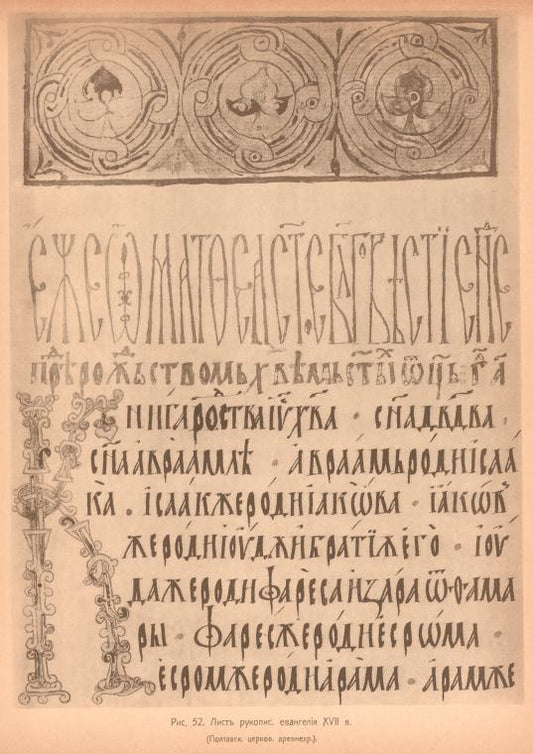 ЕЖЕ Ѿ МАТѲЕА СТ҃Е БЛ҃ГОВѢСТЇЕ
рожⷣьствомь ст҃ыⷯ ѿц҃ь
Книга роⷣства і҃у х҃ва · сн҃а дв҃да ·
сн҃а авраамлѣ · авраамь роди ісаа
ка . ісаак же роди іакѡва · іакѡв
же роди іоудѫ и братїѧ его · іоу
да же роди фареса и зара ѿ ѳама
ры · фарес же роди есрѡма ·
есром же роди арама · арам же
Рис. 52. Листъ рукопис. евангелія XVII в.
(Полтавск. церков. древнехр.).